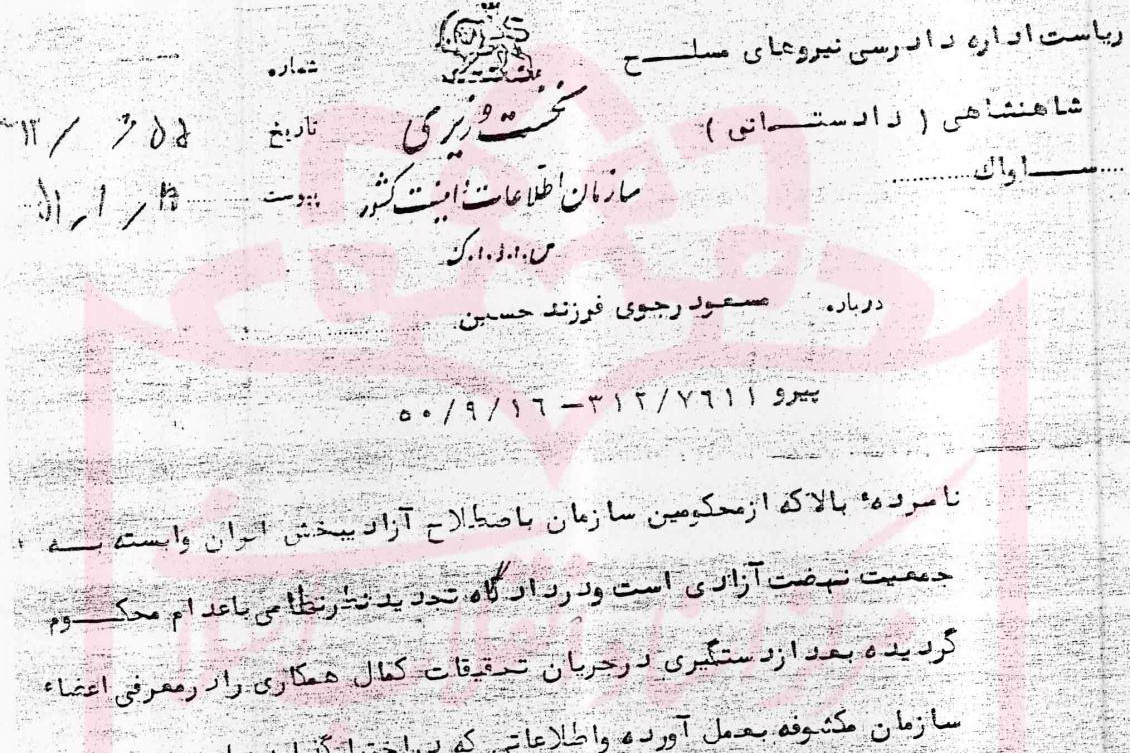 ریاست اداره دادرسی نیروهای مسلـــح
شاهنشاهی ( دادستــــانی )
ســـاواک
نخست وزیری
سازمان اطلاعات و امنیت کشور
س.ا.و.ا.ک
شماره
تاریخ
پیوست
درباره مسعود رجوی فرزند حسین
پیرو ۳۱۲/۷٦۱۱ – ۵۰/۹/۱٦
نامبرده بالا که ازمحکومین سازمان باصطلاح آزادیبخش ایران وابسته بــه
جمعیت نهضت آزادی است ودردادگاه تجدیدنظرنظامی باعدام محکـــوم
گردیده بعدازدستگیری درجریان تحقیقات کمال همکاری رادرمعرفی اعضاء
سازمان مکشوفه بعمل آورده واطلاعاتی که